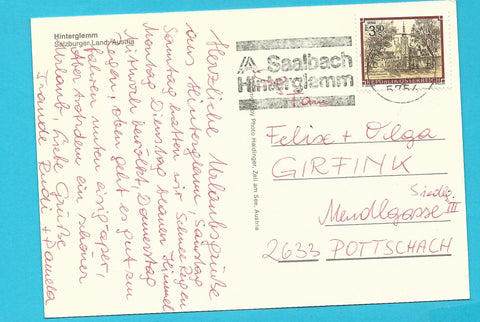 Hinterglemm
Salzburger Land, Austria
Herzliche Urlaubsgrüße
aus Hinterglemm Samstag
Sonntag hatten wir Schnee Regen
Montag Dienstag blauen Himmel
Mittwoch bewölkt, Donnerstag
Regen, oben geht es gut zum
fahren unten eisig, aper,
Aber trotzdem ein schöner
Urlaub, liebe Grüße
Traude Rudi + Pamela
by Photo Haidinger, Zell am See, Austria
Saalbach
Hinterglemm
5754
S 3.50
REPUBLIK ÖSTERREICH
Fam
Felix + Olga
GIRFINK
Siedlg. III
Mendlgasse
2633 POTTSCHACH